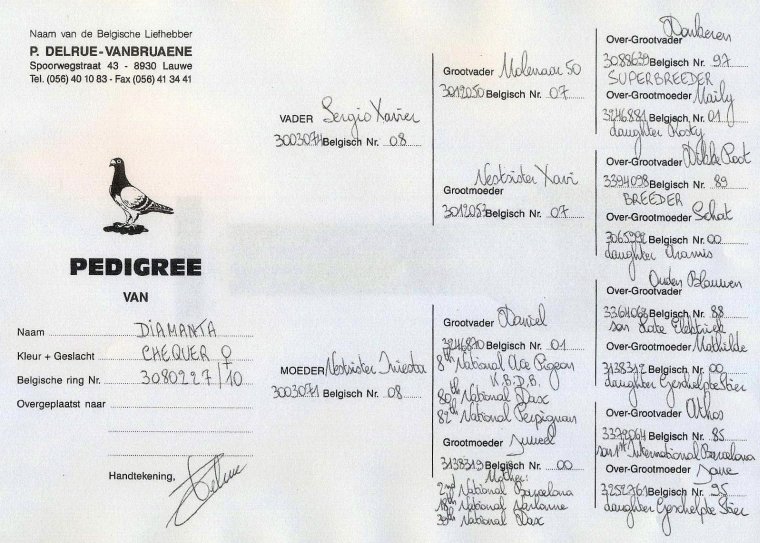 Naam van de Belgische Liefhebber
P. DELRUE-VANBRUAENE
Spoorwegstraat 43 - 8930 Lauwe
Tel. (056) 40 10 83 - Fax (056) 41 34 41
PEDIGREE
VAN
Naam DIAMANTA
Kleur + Geslacht CHEQUER ♀
Belgische ring Nr. 3080227/10
Overgeplaatst naar
Handtekening,
Delrue
VADER Sergio Xavier
3003074 Belgisch Nr. 08
MOEDER Nestsister Iniesta
3003071 Belgisch Nr. 08
Grootvader Molenaar 50
3012050 Belgisch Nr. 07
Nestsister Xavi
Grootmoeder
3012053 Belgisch Nr. 07
Grootvader Daniel
3246820 Belgisch Nr. 01
8th National Ace Pigeon
K.B.D.B.
80th National Dax
82th National Perpignan
Grootmoeder Juweel
3138319 Belgisch Nr. 00
Mother:
2nd National Barcelona
18th National Narbonne
39th National Dax
Donkeren
Over-Grootvader
3088639 Belgisch Nr. 97
SUPERBREEDER
Over-Grootmoeder Maily
3246881 Belgisch Nr. 01
daughter Rosty
Over-Grootvader Dikke Poot
3394098 Belgisch Nr. 89
BREEDER
Over-Grootmoeder Schat
3065992 Belgisch Nr. 00
daughter
Ouden Blauwen
Over-Grootvader
3364068 Belgisch Nr. 88
son Late Elektriek
Over-Grootmoeder Mathilde
3138312 Belgisch Nr. 00
daughter Geschelpte Stier
Over-Grootvader Athos
3372064 Belgisch Nr. 85
son 1st International Barcelona
Over-Grootmoeder Jane
3252761 Belgisch Nr. 95
daughter Geschelpte Stier